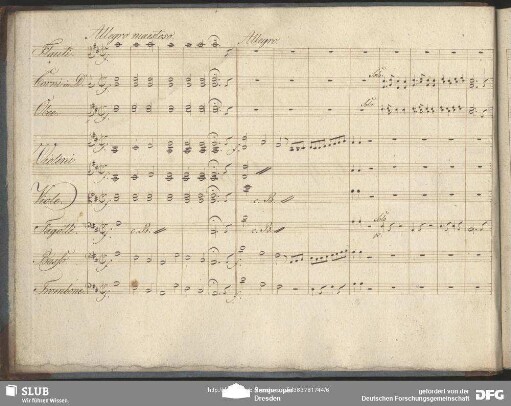 Allegro maestoso. Allegro
Flauti.
Corni in D.
Solo
Oboe
Solo
Violini
Viole
c. B.
Fagotti
c. B.
c. B.
Solo
Bassi
Trombone
SLUB
Wir führen Wissen.
http://
Dresden
gefördert von der
Deutschen Forschungsgemeinschaft
DFG